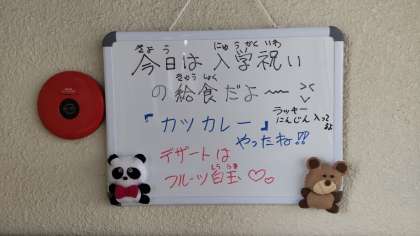 きょう にゅうがくいわ
今日は 入学祝い
きゅうしょく
の給食だよ〜 ><
ラッキー
にんじん入ってるよ
『カツカレー』
やったね!!
デザートは
しらたま
フルーツ白玉♡♡